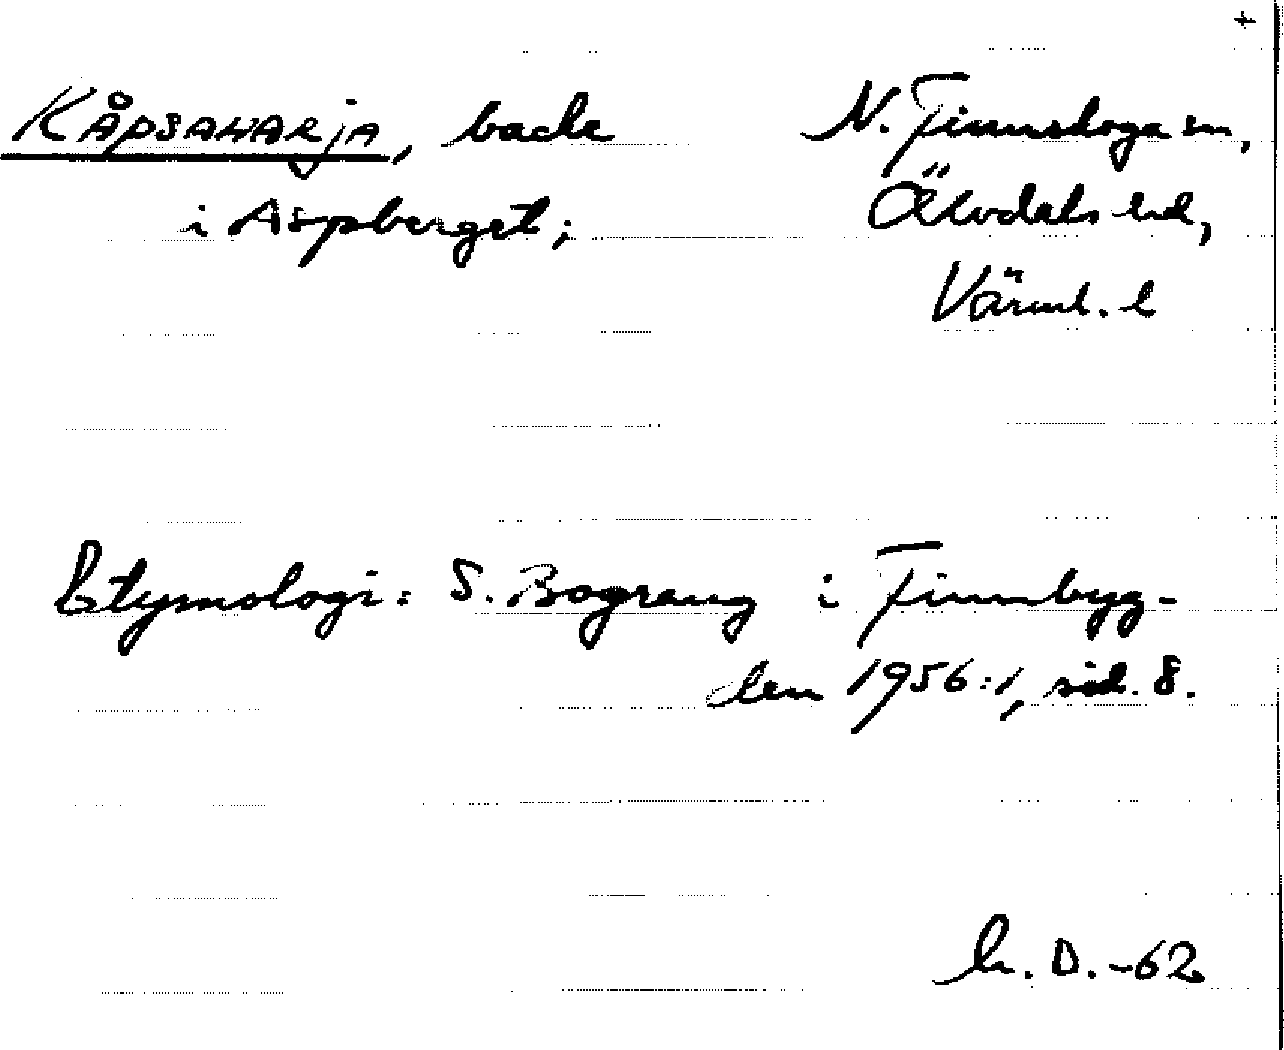 +
KÅPSAHARJA, backe N. Finnskoga sn,
i Aspberget; Älvdals hd,
Värml. l
Etymologi: S. Bograng i Finnbyg-
den 1956:1, sid. 8.
D. -62